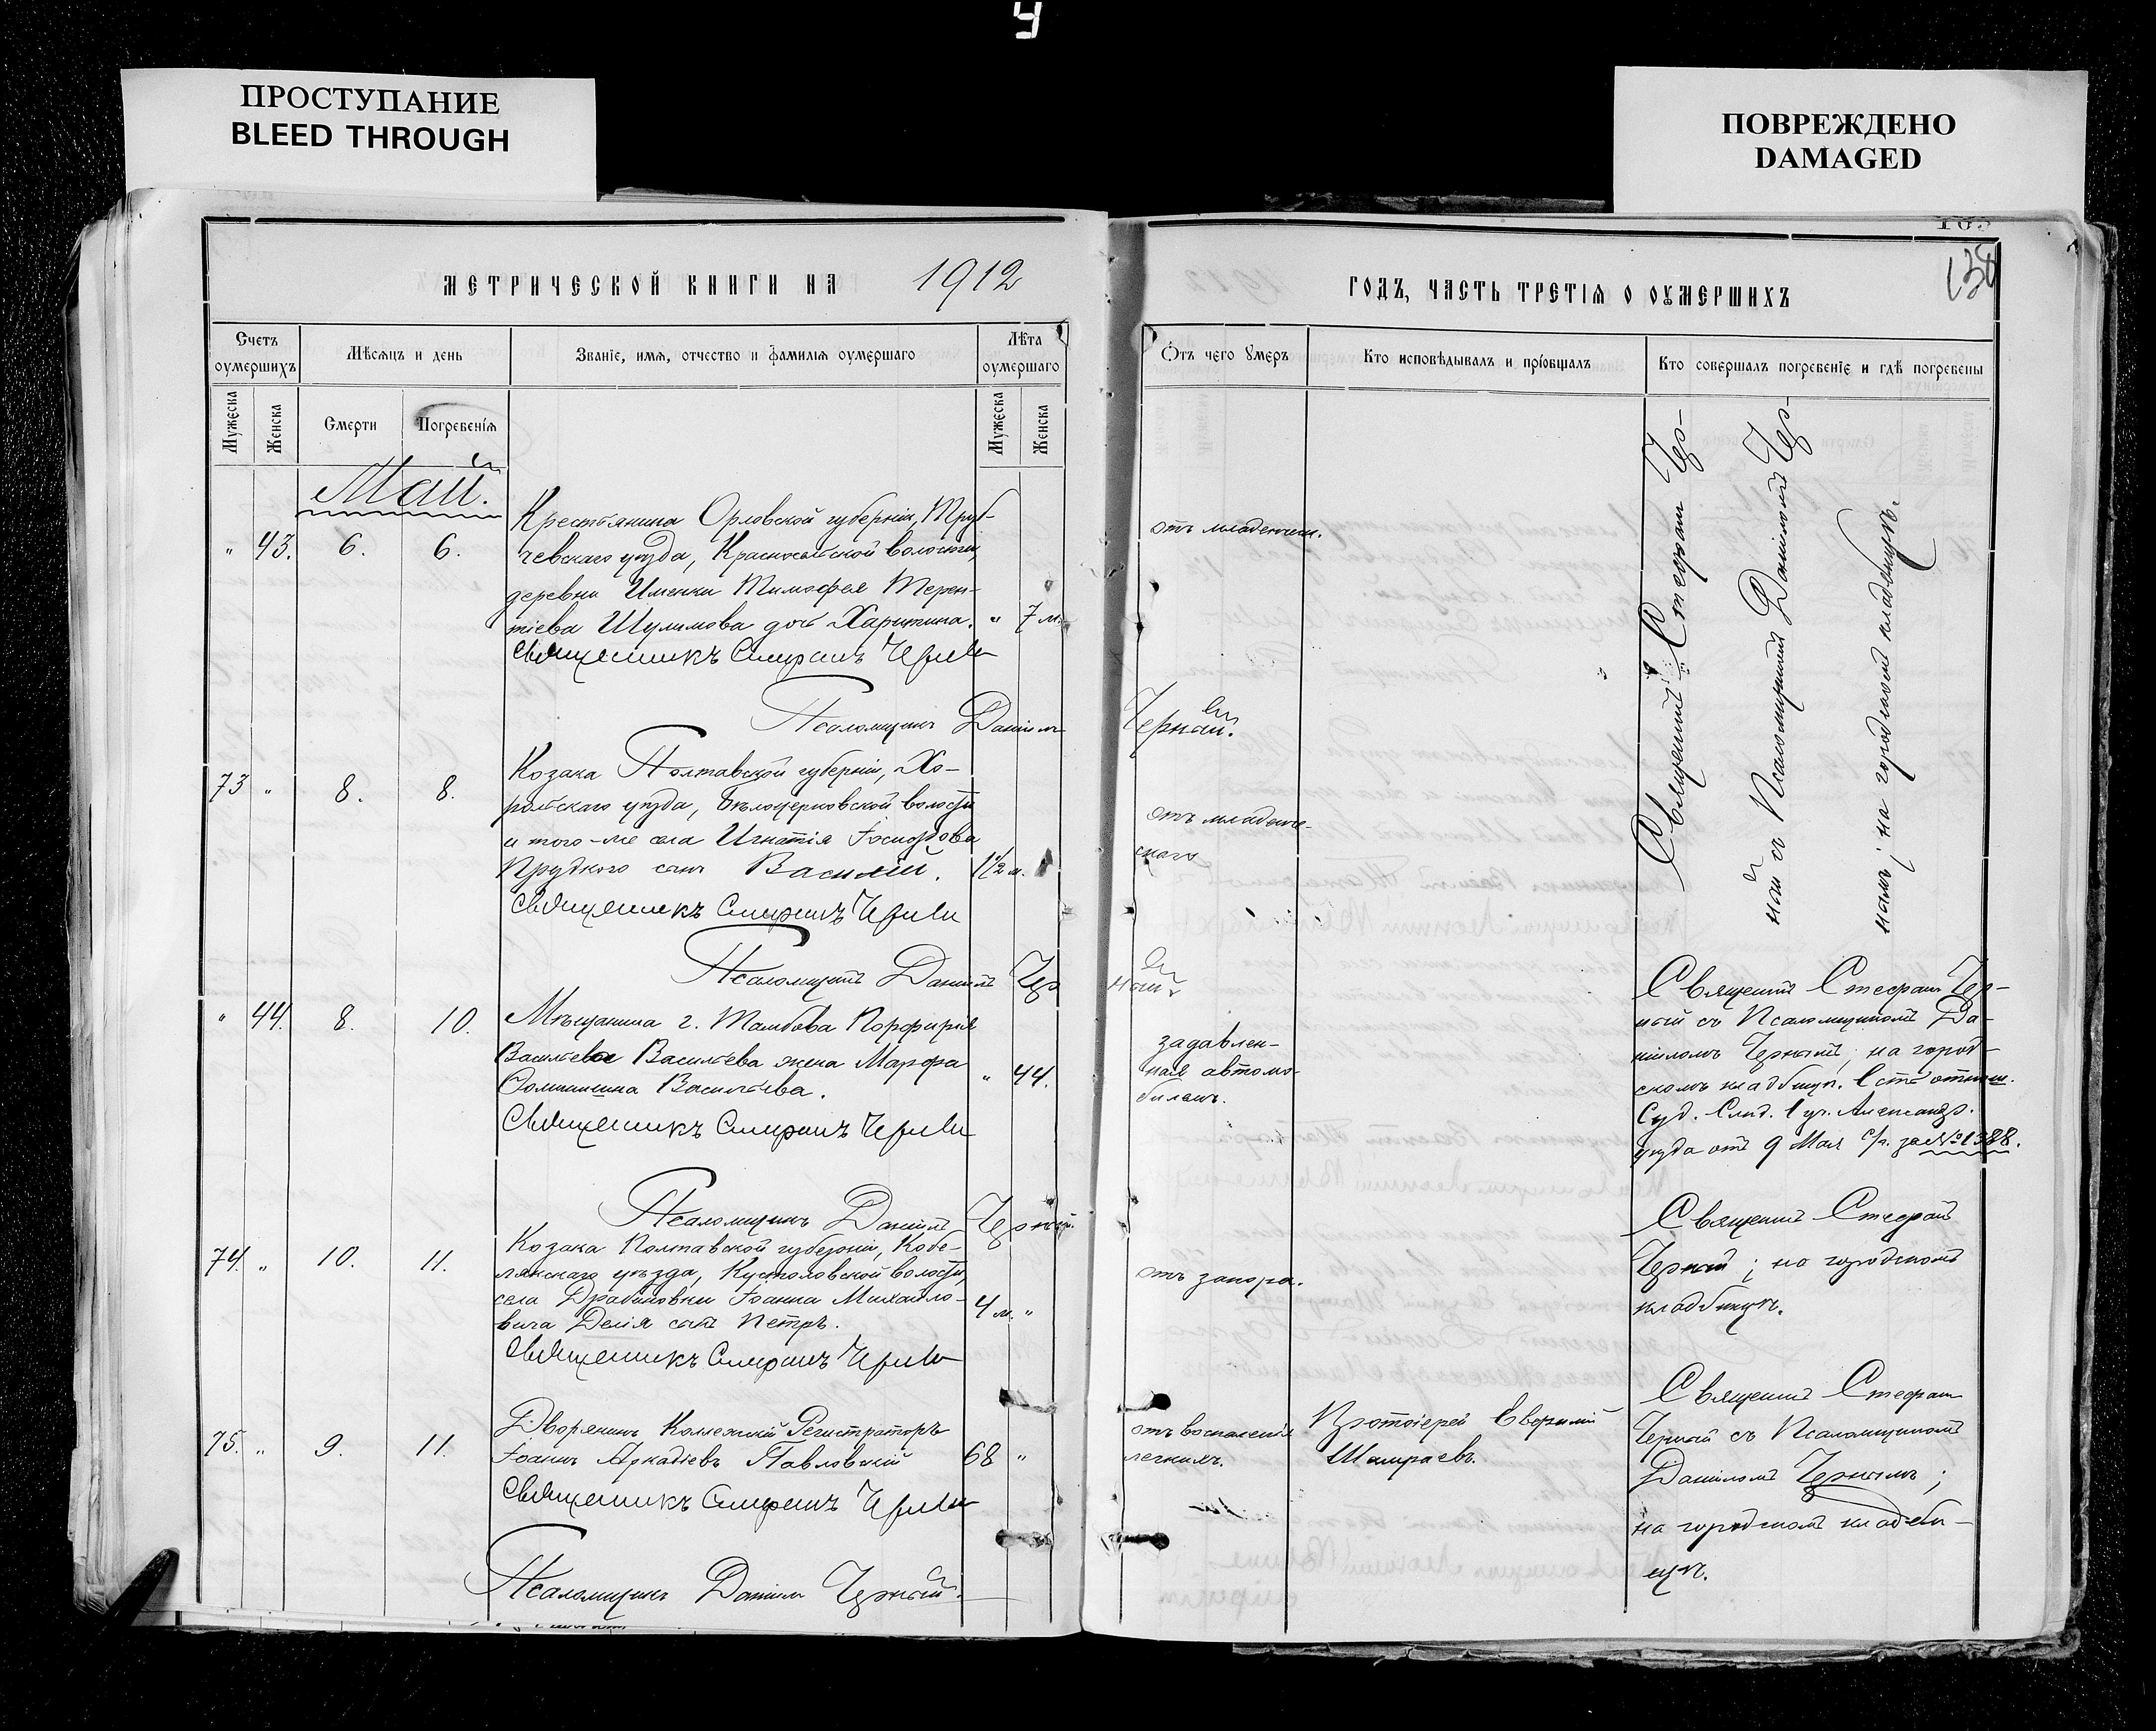 ПРОСТУПАНИЕ
BLEED THROUGH
ПОВРЕЖДЕНО
DAMAGED
МЕТРИЧЕСКОЙ КНИГИ НА 1912
Счетъ оумершихъ
Мѣсяцъ и день
Званіе, имя, отчество и фамилія оумершаго
Лѣта оумершаго
Мужеска
Женска
Смерти
Погребенія
Мужеска
Женска
Май.
" 43. 6. 6.
Крестьянина Орловской губерніи, Труб-
чевскаго уѣзда, Красносельской волости,
деревни Тимофея Терен-
тіева Шулимова дочь Харитина. " 7 м.
Священникъ Стефанъ Черный
Псаломщикъ Даніилъ Черный.
73 " 8. 8.
Козака Полтавской губерніи, Хо-
рольскаго уѣзда, Бѣлоцерковской волости
и того-же села Игнатія Іосифова
Прудкого сынъ Василій. 1½ м.
Священникъ Стефанъ Черный
Псаломщикъ Даніилъ Черный.
" 44. 8. 10.
Мѣщанина г. Тамбова Порфирія
Васильева Васильева жена Марфа
Васильева. " 44.
Священникъ Стефанъ Черный
Псаломщикъ Даніилъ Черный.
74. " 10. 11.
Козака Полтавской губерніи, Кобе-
лякскаго уѣзда, Кустоловской волости,
села Драбиновки Іоанна Михайло-
вича Делія сынъ Петръ. 4 м. "
Священникъ Стефанъ Черный
75. " 9. 11.
Дворянинъ Коллежскій Регистраторъ
Іоаннъ Аркадіевъ Павловскій 68 "
Священникъ Стефанъ Черный
Псаломщикъ Даніилъ Черный.
ГОДЪ, ЧАСТЬ ТРЕТІЯ О ОУМЕРШИХЪ
Отъ чего умеръ
Кто исповѣдывалъ и пріобщалъ
Кто совершалъ погребеніе и гдѣ погребены
отъ младенчес.
Священникъ Стефанъ Чер-
ный съ Псаломщикомъ Даніиломъ Чер-
нымъ; на городскомъ кладбищѣ.
отъ младенче-
скаго
задавлен-
ная автомо-
билемъ.
Священникъ Стефанъ Чер-
ный съ Псаломщикомъ Да-
ніиломъ Чернымъ; на город-
скомъ кладбищѣ. Есть отнош.
Суд. Слѣд. 1 уч. Александр.
уѣзда отъ 9 Мая с/г. за № 1388.
отъ запора.
Священникъ Стефанъ
Черный; на городскомъ
кладбищѣ.
отъ воспаленія
легкихъ.
Протоіерей Евфимій
Шамраевъ.
Священникъ Стефанъ
Черный съ Псаломщикомъ
Даніиломъ Чернымъ;
на городскомъ кладби-
щѣ.